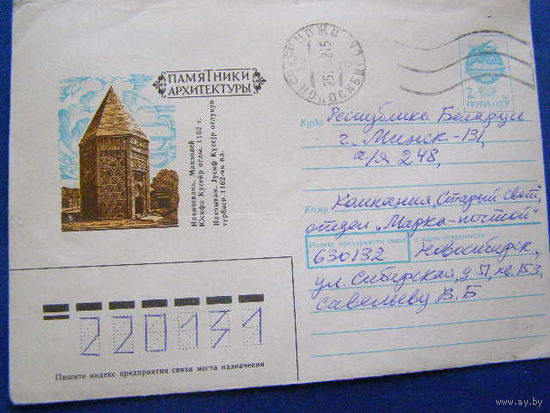 ПАМЯТНИКИ
АРХИТЕКТУРЫ
Нахичевань. Мавзолей
Юсифа Кусейр оглы. 1162 г.
Нахчыван. Јусиф Күсејр оғлунун
түрбәси. 1162-чи ил.
7к
ПОЧТА СССР
Куда Республика Беларусь
г. Минск-131,
а/я 248,
Кому Компания „Старый свет",
отдел „Марка-почтой"
Индекс предприятия связи и адрес отправителя
630132 Новосибирск,
ул. Сибирская, д. 51, кв. 153,
Савельеву В.Б
220131
Пишите индекс предприятия связи места назначения
www.ay.by